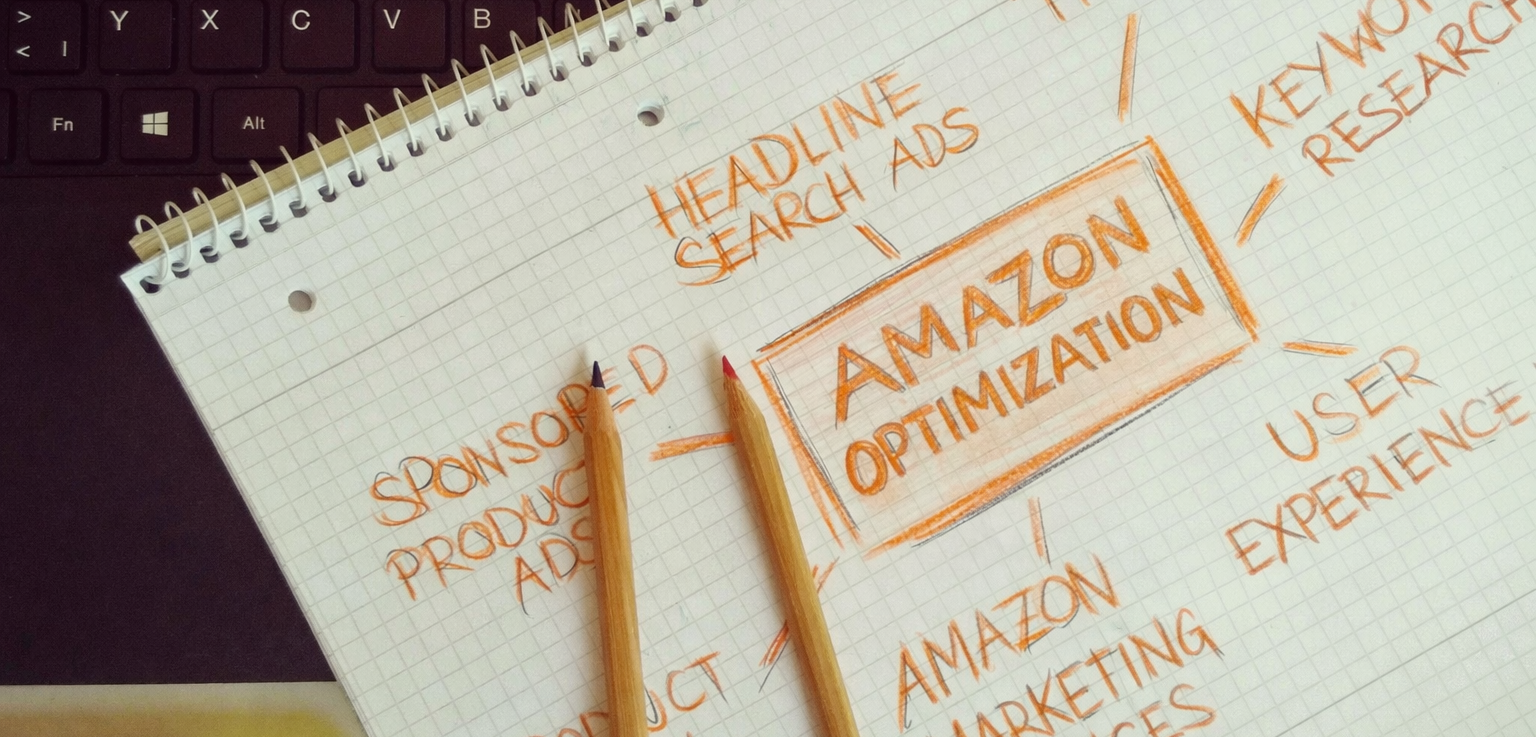 > Y X C V B
< |
Fn Alt
HEADLINE
SEARCH ADS
RESEARCH
AMAZON
OPTIMIZATION
SPONSORED
PRODUCT
ADS
USER
EXPERIENCE
AMAZON
MARKETING